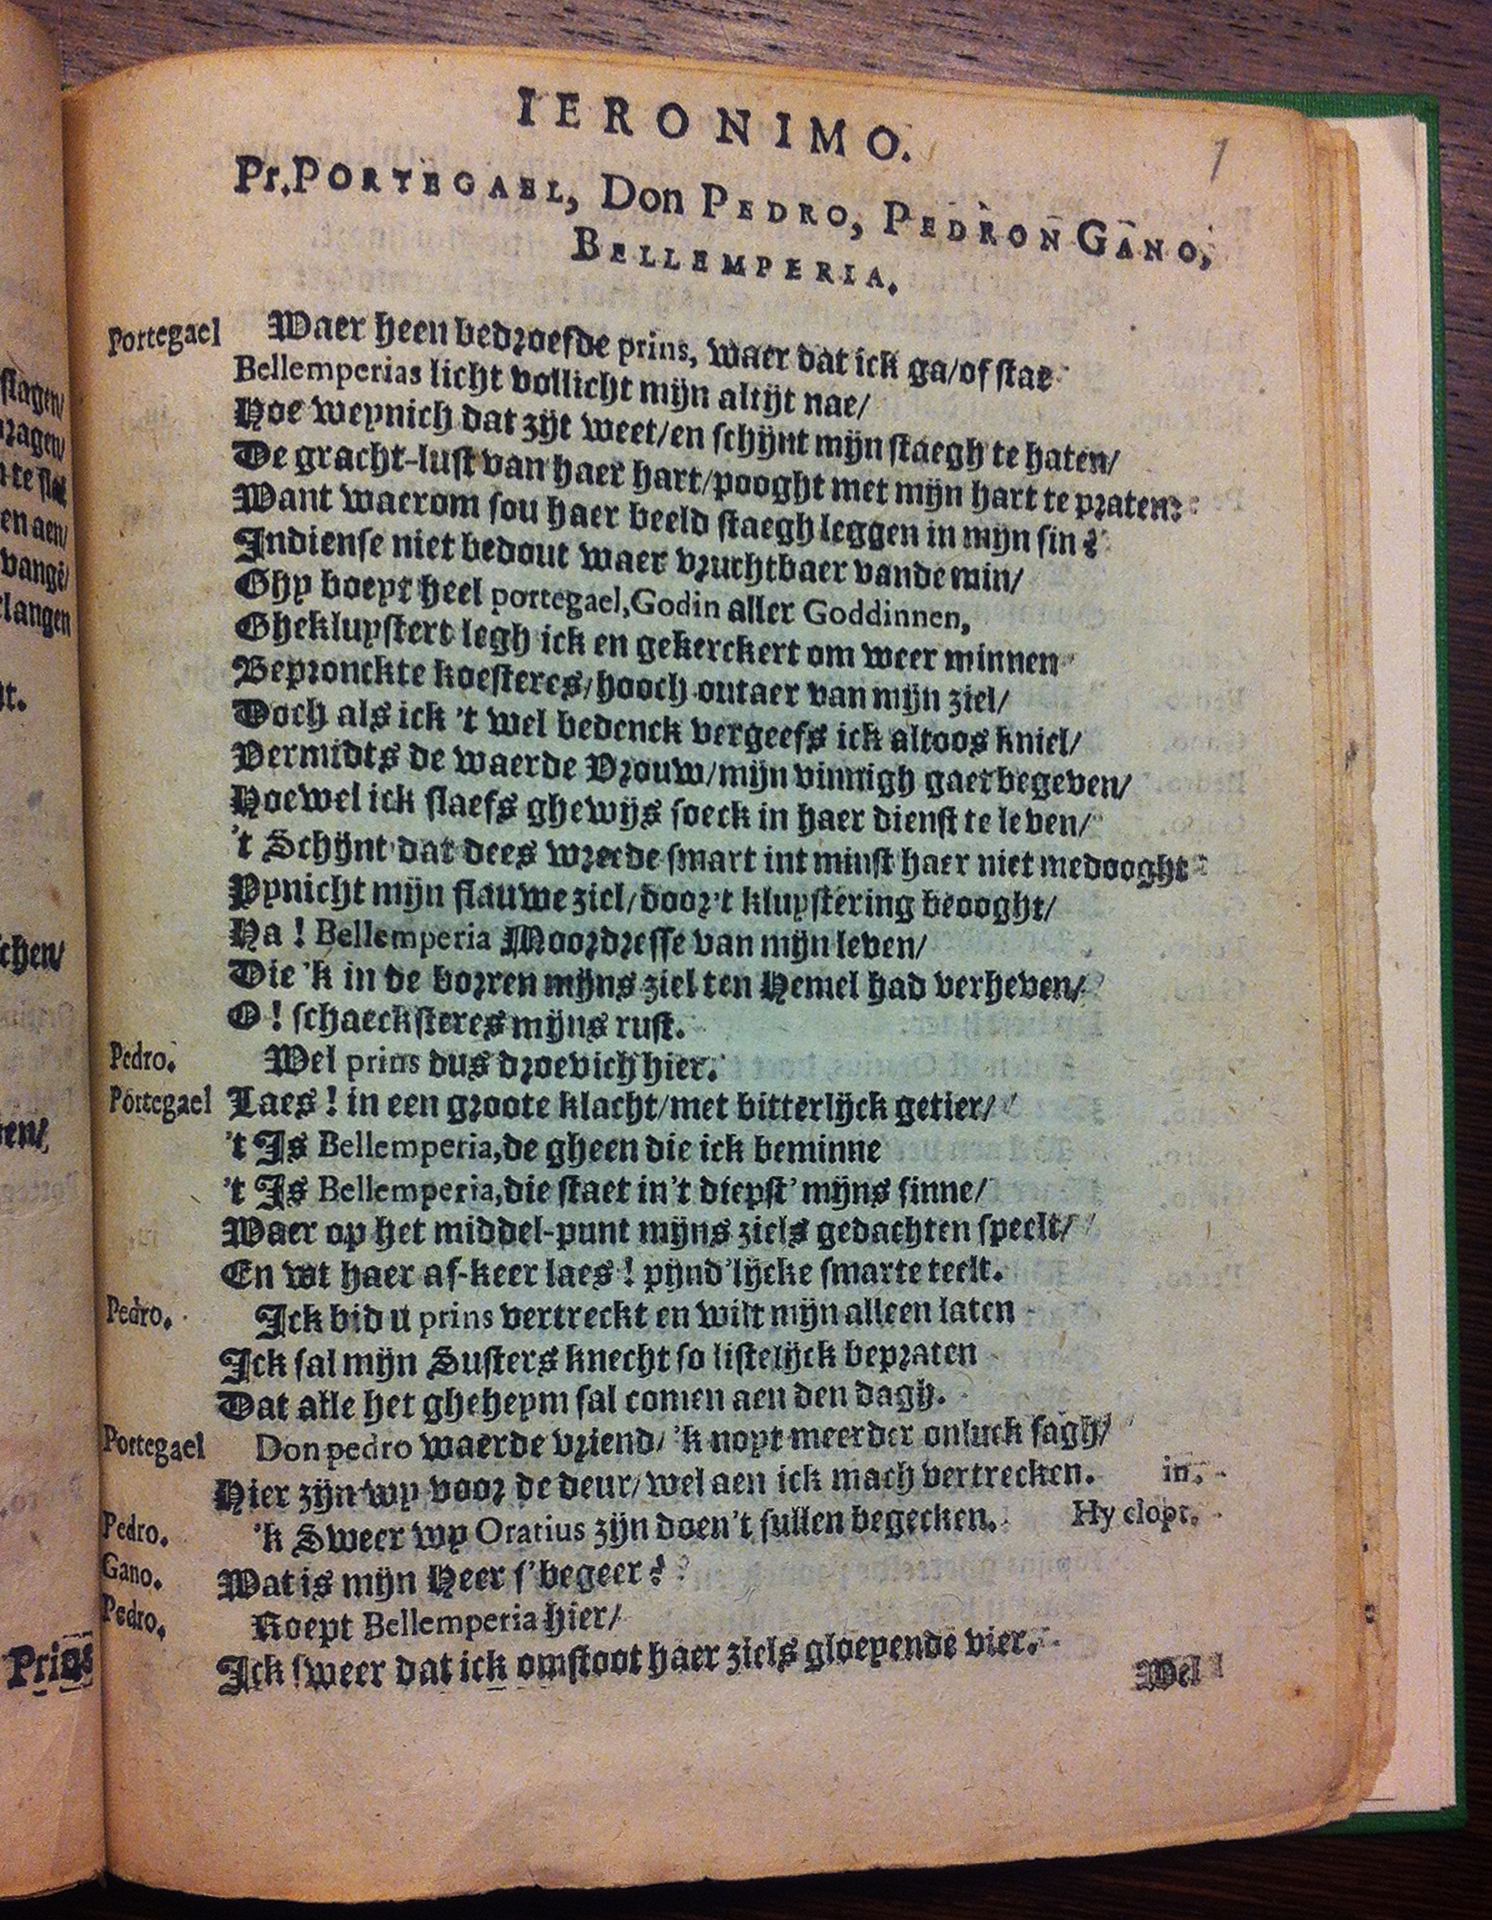 IERONIMO.
1
Pr. PORTEGAEL, Don PEDRO, PEDRON GANO,
BELLEMPERIA.
Portegael Waer heen bedroefde prins, waer dat ick ga/of stae
Bellemperias licht vollicht mijn altijt nae/
Hoe weynich dat zijt weet/en schijnt mijn staegh te haten/
De gracht-lust van haer hart/pooght met mijn hart te praten:
Want waerom sou haer beeld staegh leggen in mijn sin?
Indiense niet bedout waer vruchtbaer vande min/
Ghy boeyt heel portegael, Godin aller Goddinnen,
Ghekluystert legh ick en gekerckert om weer minnen
Bepronckte koesteres/hooch outaer van mijn ziel/
Doch als ick 't wel bedenck vergeefs ick altoos kniel/
Vermidts de waerde Vrouw/mijn vinnigh gaet begeven/
Hoewel ick slaefs ghewijs soeck in haer dienst te leven/
't Schijnt dat dees wreede smart int minst haer niet medooght
Pynicht mijn flauwe ziel/door't kluystering beooght/
Ha! Bellemperia Moordresse van mijn leven/
Die 'k in de borren mijns ziel ten Hemel had verheven/
O! schaecksteres mijns rust.
Pedro. Wel prins dus droevich hier.
Portegael Laes! in een groote klacht/met bitterlijck getier/
't Is Bellemperia, de gheen die ick beminne
't Is Bellemperia, die staet in't diepst' mijns sinne/
Waer op het middel-punt mijns ziels gedachten speelt/
En wt haer af-keer laes! pijnd'lijcke smarte teelt.
Pedro. Ick bid u prins vertreckt en wilt mijn alleen laten
Ick sal mijn Susters knecht so listelijck bepraten
Dat alle het gheheym sal comen aen den dagh.
Portegael Don pedro waerde vriend/ 'k noyt meerder onluck sagh/
Hier zijn wy voor de deur/wel aen ick mach vertrecken. in.
Pedro. 'k Sweer wy Oratius zijn doen't sullen begecken. Hy clopt.
Gano. Wat is mijn Heer s'begeer?
Pedro. Roept Bellemperia hier/
Ick sweer dat ick omstoot haer ziels gloeyende vier.
Wel
slagen/
ragen/
en aen/
vangē/
langen
chen/
ten/